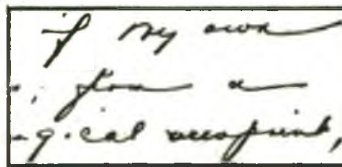 if my own
, from a
gical viewpoint,